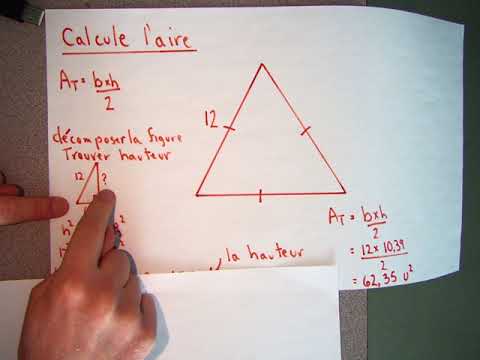 Calcule l'aire
A_T = b×h
2
décomposer la figure
Trouver hauteur
12
?
12
h²
²
h²
la hauteur
A_T = b×h
2
= 12 × 10,39
2
= 62,35 u²